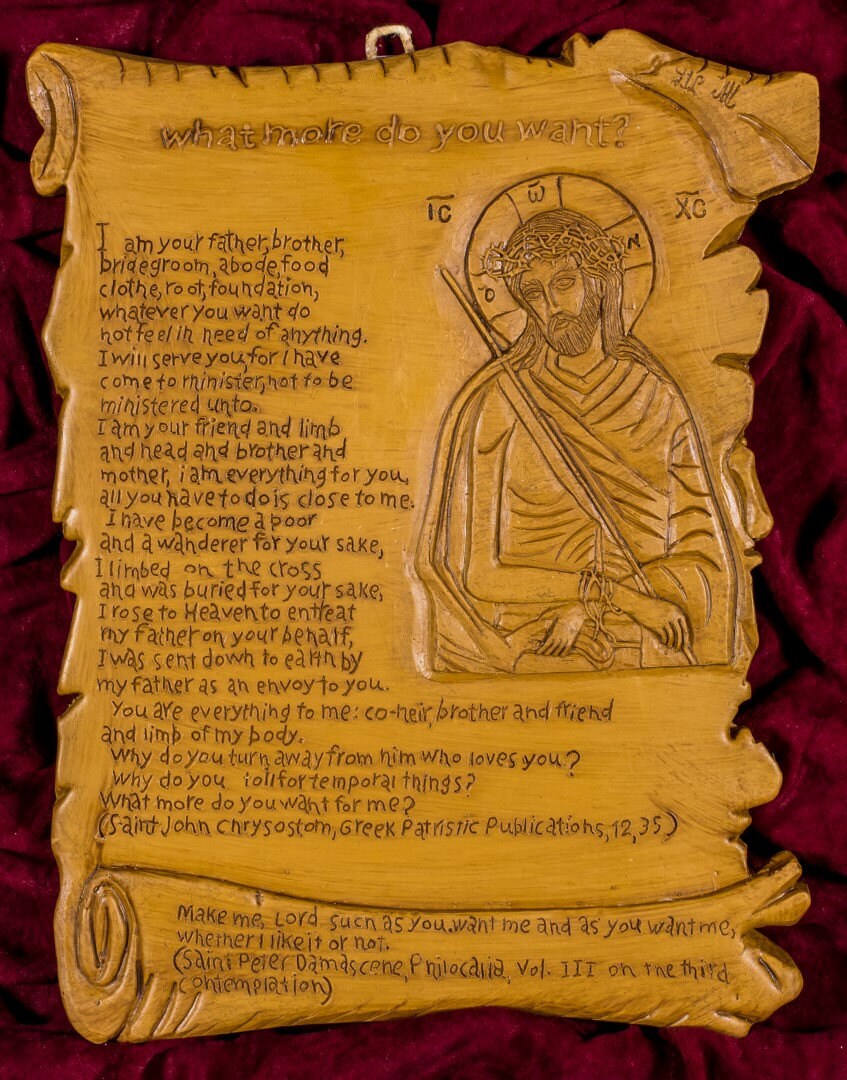 what more do you want?
IC
XC
Ο
ω
Ν
I am your father, brother,
bridegroom, abode, food
clothe, root, foundation,
whatever you want do
not feel in need of anything.
I will serve you, for I have
come to minister, not to be
ministered unto.
I am your friend and limb
and head and brother and
mother, i am everything for you,
all you have to do is close to me.
I have become a poor
and a wanderer for your sake,
I limbed on the cross
and was buried for your sake,
I rose to Heaven to entreat
my father on your behalf,
I was sent down to earth by
my father as an envoy to you.
You are everything to me: co-heir, brother and friend
and limb of my body.
Why do you turn away from him who loves you?
Why do you ioll for temporal things?
What more do you want for me?
(Saint John Chrysostom, Greek Patristic Publications, 12, 35)
Make me, Lord such as you want me and as you want me,
whether I like it or not.
(Saint Peter Damascene, Philocalia, Vol. III on the third
contemplation)